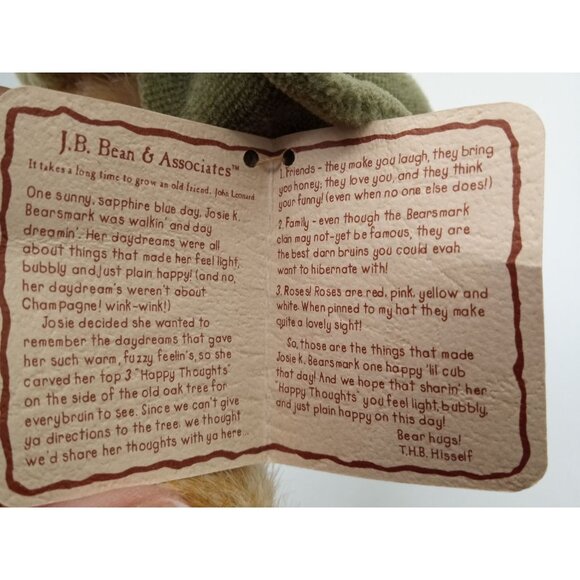 J.B. Bean & Associates™
It takes a long time to grow an old friend. -John Leonard
One sunny, sapphire blue day, Josie K.
Bearsmark was walkin' and day
dreamin'. Her daydreams were all
about things that made her feel light,
bubbly and just plain happy! (and no,
her daydream's weren't about
Champagne! wink-wink!)
Josie decided she wanted to
remember the daydreams that gave
her such warm, fuzzy feelin's, so she
carved her top 3 "Happy Thoughts"
on the side of the old oak tree for
everybruin to see. Since we can't give
ya directions to the tree, we thought
we'd share her thoughts with ya here...
1. Friends - they make you laugh, they bring
you honey, they love you, and they think
your funny! (even when no one else does!)
2. Family - even though the Bearsmark
clan may not-yet be famous, they are
the best darn bruins you could evah
want to hibernate with!
3. Roses! Roses are red, pink, yellow and
white. When pinned to my hat they make
quite a lovely sight!
So, those are the things that made
Josie K. Bearsmark one happy 'lil cub
that day! And we hope that sharin' her
"Happy Thoughts" you feel light, bubbly,
and just plain happy on this day!
Bear hugs!
T.H.B. Hisself